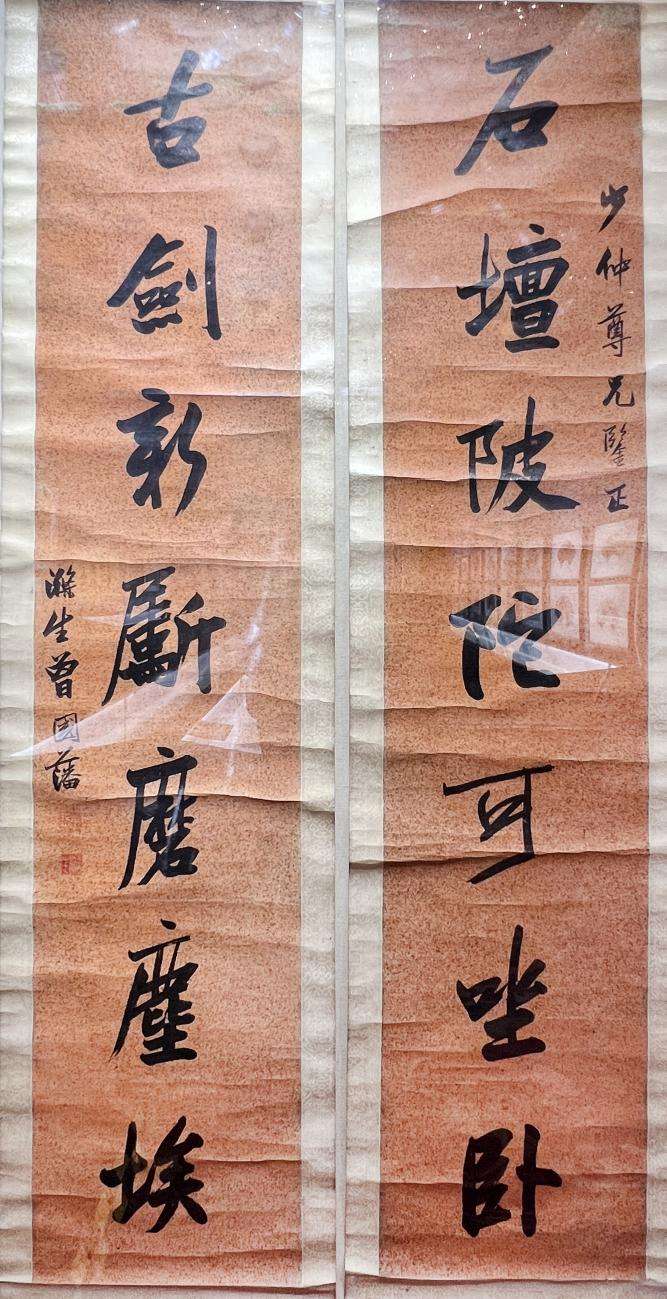 少仲尊兄鑒正
石壇陂陀可坐臥
古劍新斸磨塵埃
滌生曾國藩